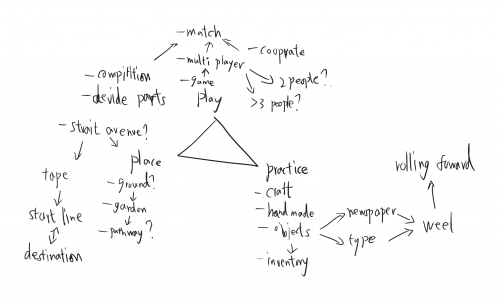 - match
- cooprate
- multi player
- compitition
- game
2 people?
- devide parts
play
>3 people?
- strait avenue?
place
practice
rolling foward
tape
- ground?
- craft
- garden
- hand made
newspaper
start line
- pathway?
- objects
type
weel
destination
- inventory